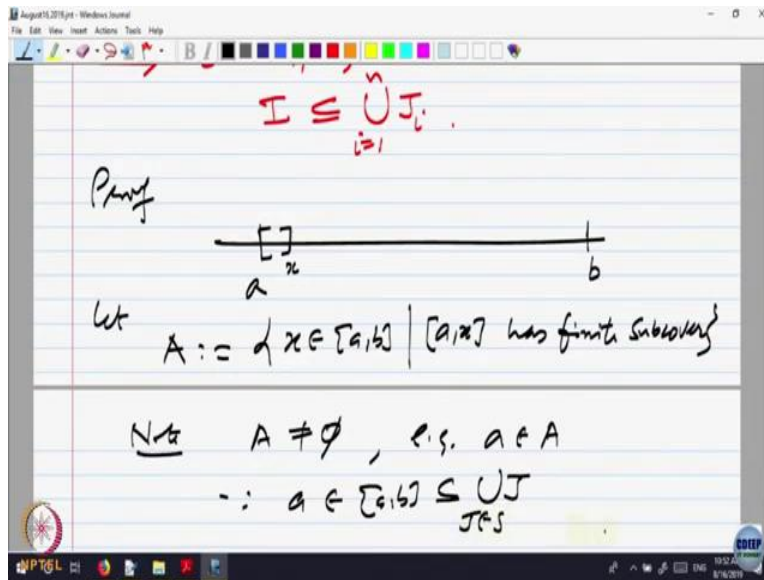 August16,2019.jnt - Windows Journal
File Edit View Insert Actions Tools Help
I ⊆ n⋃i=1 Ji .
Proof
[ ]
a x b
Let
A := { x ∈ [a,b] | [a,x] has finite subcover}
Note A ≠ ∅ , e.g. a ∈ A
∵ a ∈ [a,b] ⊆ ⋃J∈S J
NPTEL
CDEEP
ENG
8/16/2019